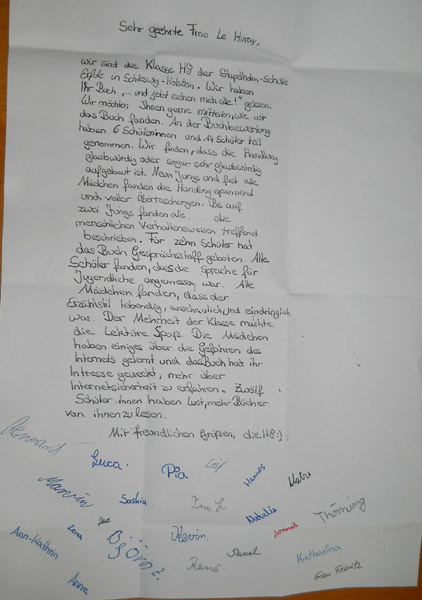 Sehr geehrte Frau Le Huray,
wir sind die Klasse H8 der Stapelholm-Schule
Erfde in Schleswig-Holstein. Wir haben
Ihr Buch „... und jetzt sehen mich alle!" gelesen.
Wir möchten Ihnen gerne mitteilen, wie wir
das Buch fanden. An der Buchbewertung
haben 6 Schülerinnen und 14 Schüler teil
genommen. Wir finden, dass die Handlung
glaubwürdig oder sogar sehr glaubwürdig
aufgebaut ist. Neun Jungs und fast alle
Mädchen fanden die Handlung spannend
und voller Überraschungen. Bis auf
zwei Jungs fanden alle die
menschlichen Verhaltensweisen treffend
beschrieben. Für zehn Schüler hat
das Buch Gesprächsstoff geboten. Alle
Schüler fanden, dass die Sprache für
Jugendliche angemessen war. Alle
Mädchen fanden, dass der
Erzählstil lebendig, anschaulich und eindringlich
war. Der Mehrheit der Klasse machte
die Lektüre Spaß. Die Mädchen
haben einiges über die Gefahren des
Internets gelernt und das Buch hat ihr
Intresse geweckt, mehr über
Internetsicherheit zu erfahren. Zwölf
Schüler innen haben Lust, mehr Bücher
von ihnen zu lesen.
Mit freundlichen Grüßen, die H8 :)
Lennard
Luca Pia Leif Hannes Malte
Marvin Saskia Tim L Natalie Jannes Thöming
Ann-Kathrin Lena Björn Z. Kevin Pascal Katharina
Anne René Frau